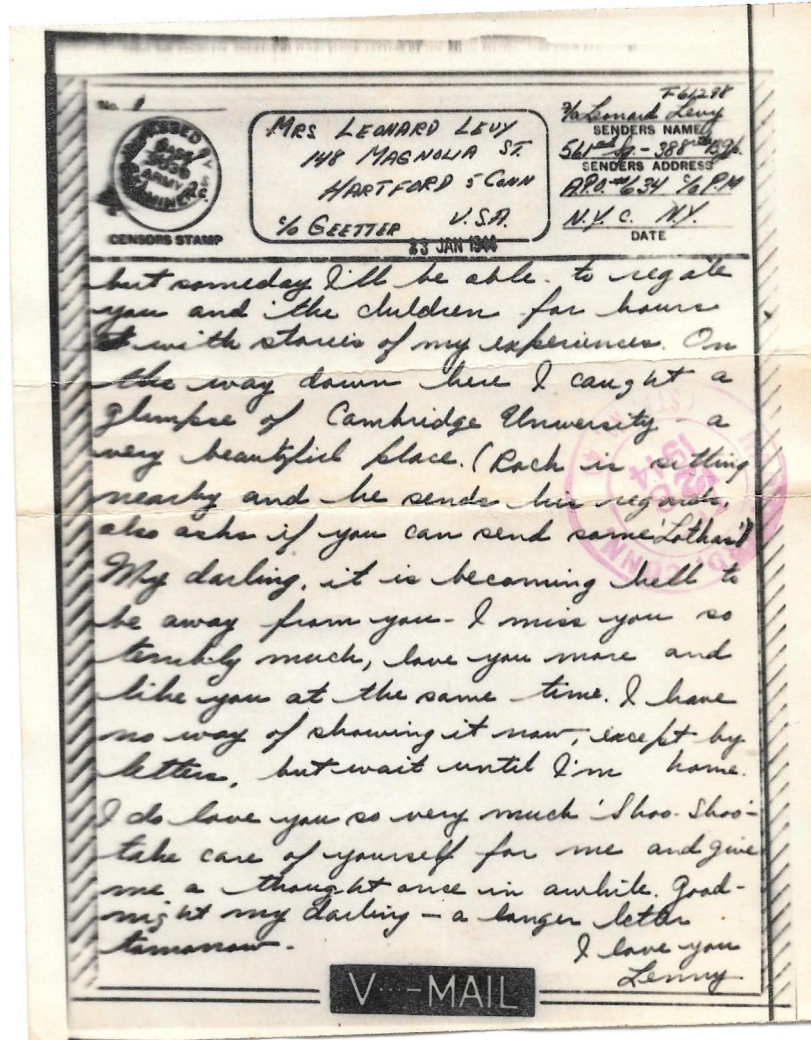 F61298
No. 8
MRS LEONARD LEVY
148 MAGNOLIA ST.
HARTFORD 5 CONN
c/o GEETTER U.S.A.
23 JAN 1944
PASSED BY
BASE
ARMY
EXAMINER
CENSORS STAMP
Leonard Levy
SENDERS NAME
561 - 388
SENDERS ADDRESS
A.P.O. 634 c/o P.M
N.Y.C. N.Y.
DATE
but someday I'll be able to regale
you and the children for hours
with stories of my experiences. On
the way down here I caught a
glimpse of Cambridge University - a
very beautiful place. (Rock is sitting
nearby and he sends his regards,
also asks if you can send some
My darling, it is becoming hell to
be away from you - I miss you so
terribly much, love you more and
like you at the same time. I have
no way of showing it now, except by
letters, but wait until I'm home.
I do love you so very much 'Shoo-Shoo' -
take care of yourself for me and give
me a thought once in awhile. Good-
night my darling - a longer letter
tomorrow.
I love you
Lenny
V···-MAIL
CONN